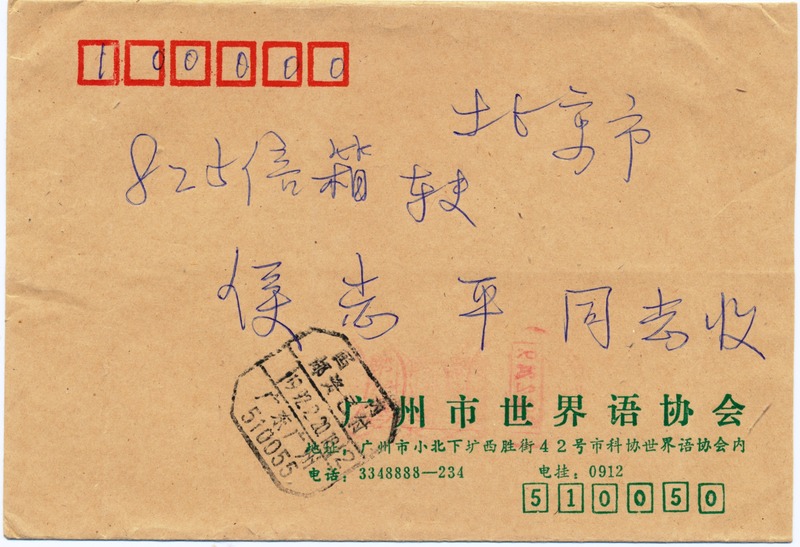 100000
北京市
825信箱 转
侯志平同志收
国内
邮资已付
广东广州
510055
广州市世界语协会
地址:广州市小北下圹西胜街42号市科协世界语协会内
电话:3348888—234 电挂:0912
510050